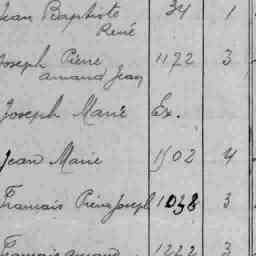 Jean Baptiste 34 1
René
Joseph Pierre 1172 3
Amand Jean
Joseph Marie Ex.
Jean Marie 1502 4
Francois Pierre Joseph 1038 3
Francois Amand 1222 3